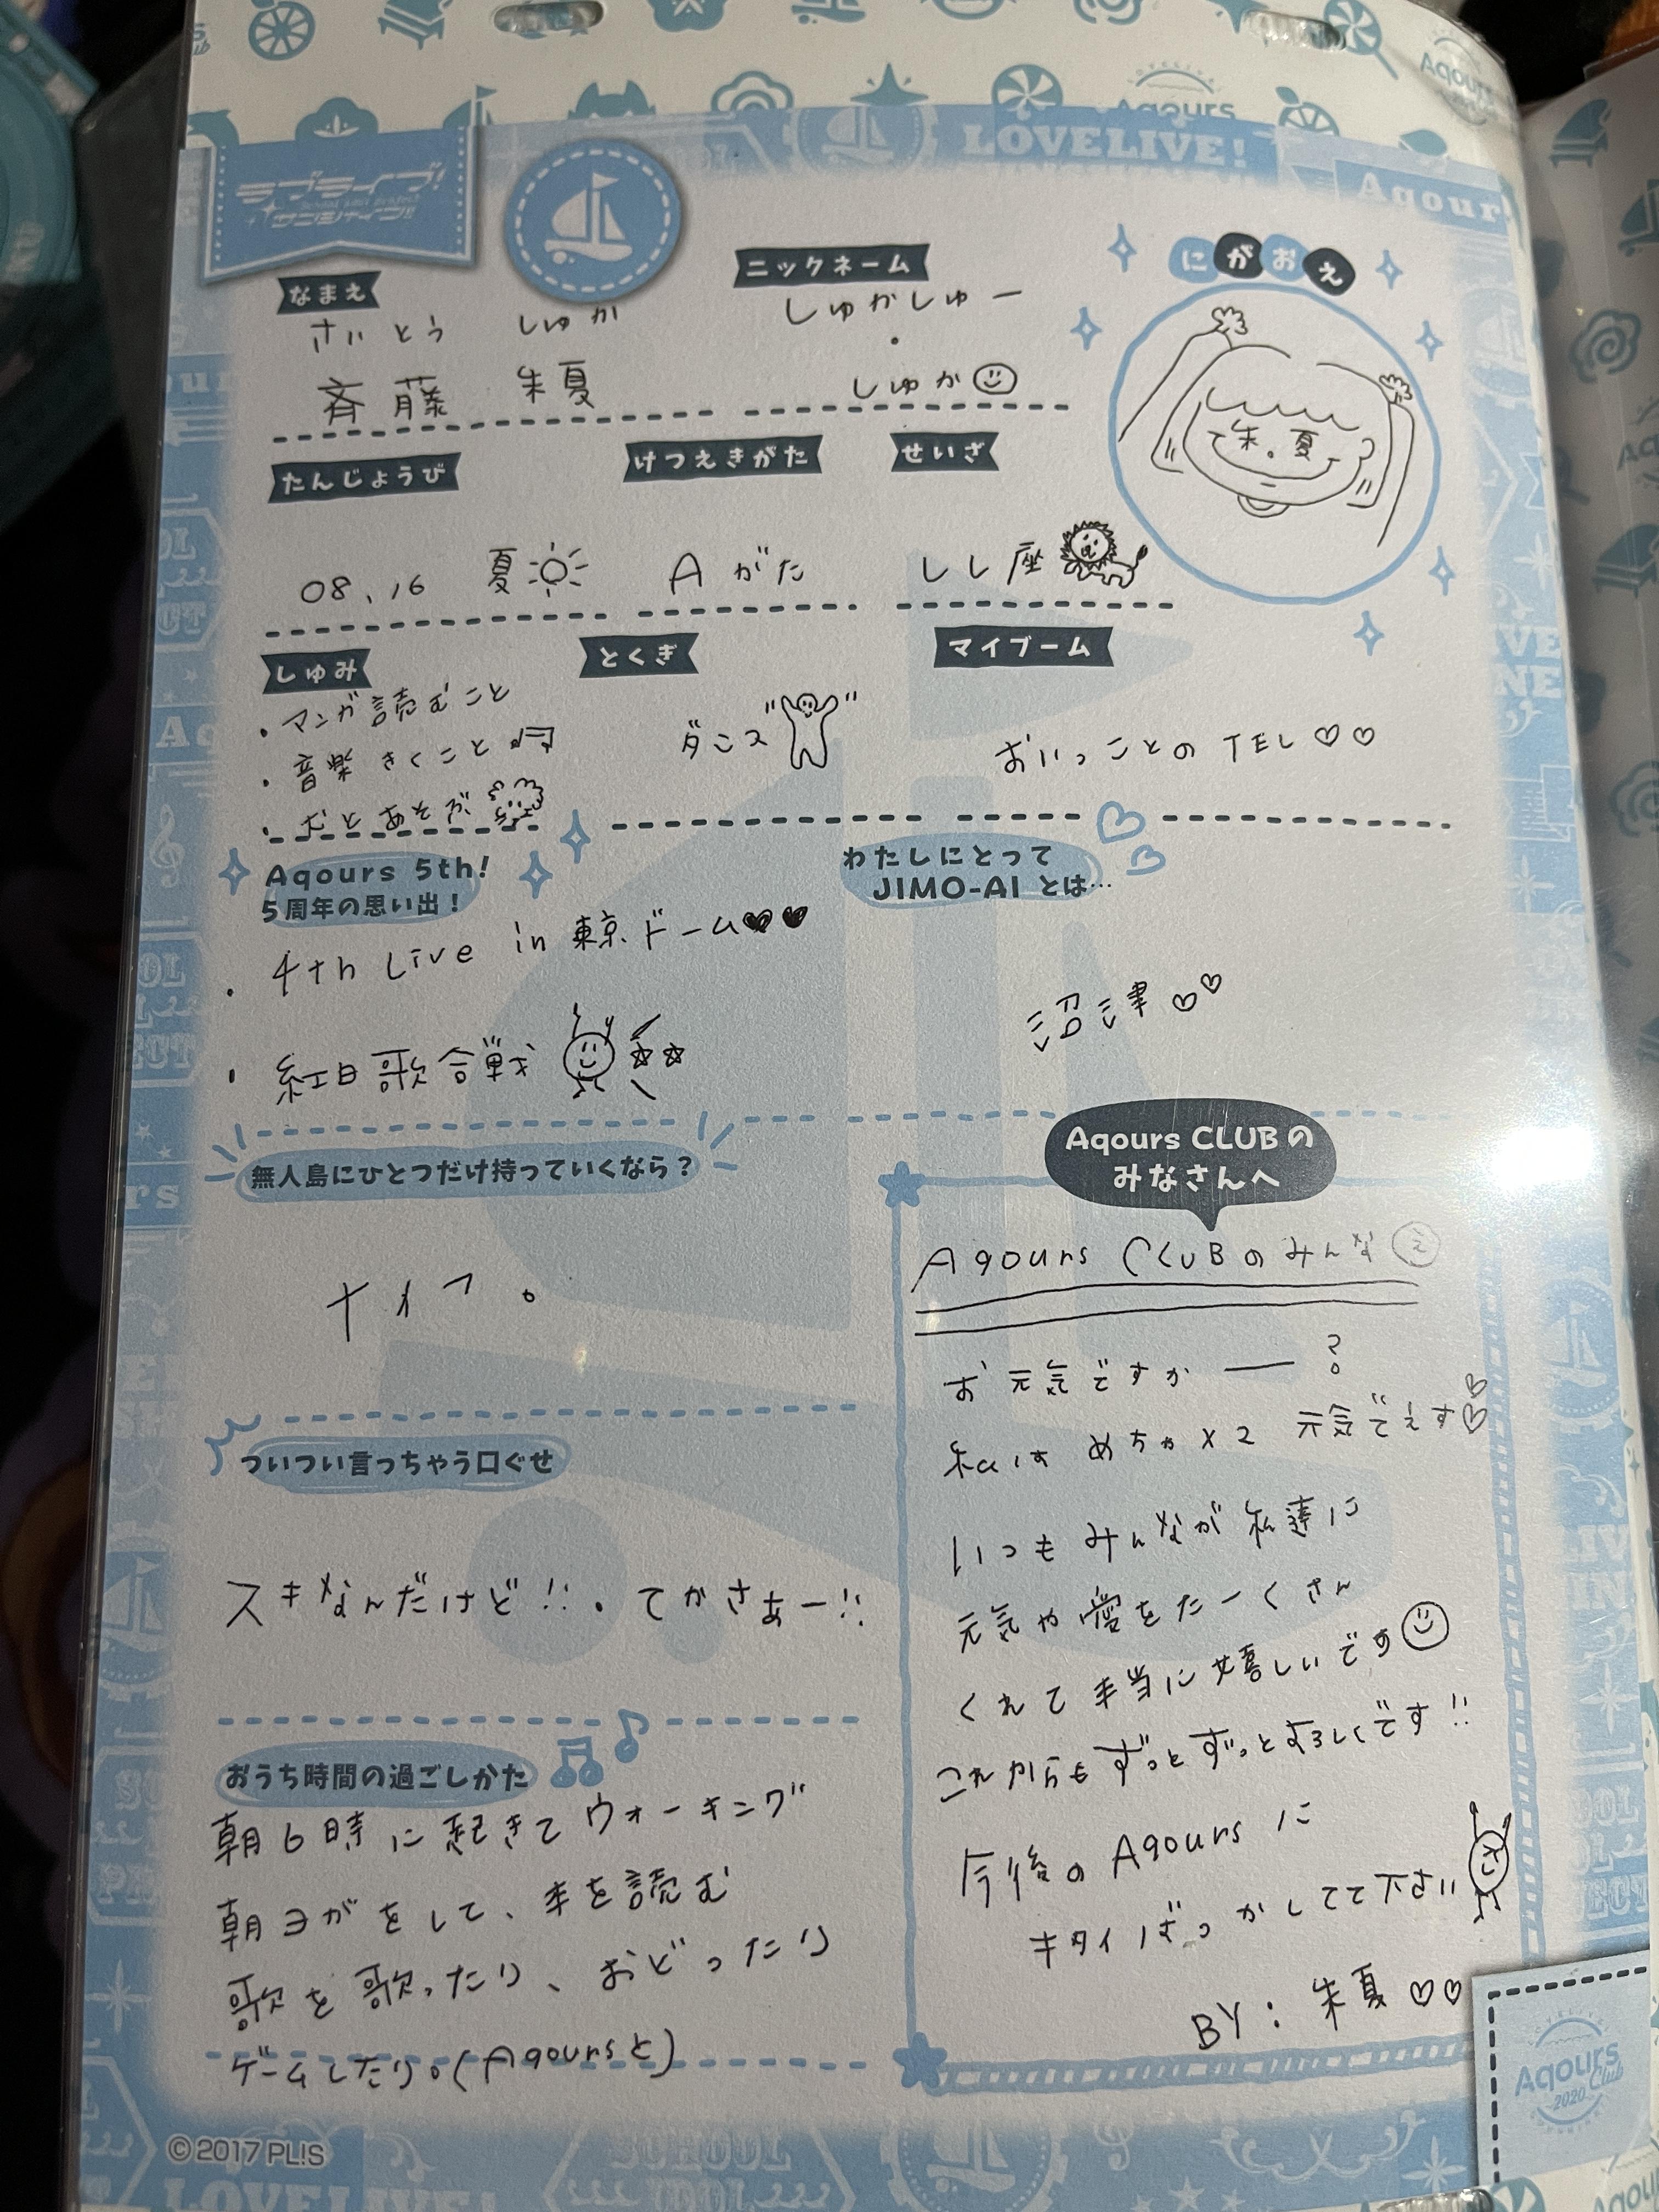 LOVELIVE!
Aqours
ラブライブ!
サンシャイン!!
なまえ
さいとう しゅか
斉藤 朱夏
ニックネーム
しゅかしゅー
・
しゅか
にがおえ
朱 。 夏
たんじょうび
08.16 夏
けつえきがた
A がた
せいざ
しし座
しゅみ
・マンガ読むこと
・音楽きくこと
・犬とあそぶ
とくぎ
ダンス
マイブーム
おいっことのTEL♡♡
Aqours 5th!
5周年の思い出!
・4th Live in 東京ドーム♥♥
・紅白歌合戦
わたしにとって
JIMO-AIとは…
沼津♡♡
無人島にひとつだけ持っていくなら?
ナイフ。
ついつい言っちゃう口ぐせ
スキなんだけど!!・てかさぁー!!
おうち時間の過ごしかた
朝6時に起きてウォーキング
朝ヨガをして、本を読む
歌を歌ったり、おどったり
ゲームしたり。(Aqoursと)
Aqours CLUBの
みなさんへ
Aqours CLUBのみんなえ
お元気ですかー?
私はめちゃ×2 元気でぇす♡♡
いつもみんなが私達に
元気や愛をたーくさん
くれて本当に嬉しいです
これからもずっとずっとよろしくです!!
今後のAqoursに
キタイばっかしてて下さい
BY:朱夏♡♡
Aqours
Club
2020
©2017 PL!S
SCHOOL
IDOL
LOVELIVE!